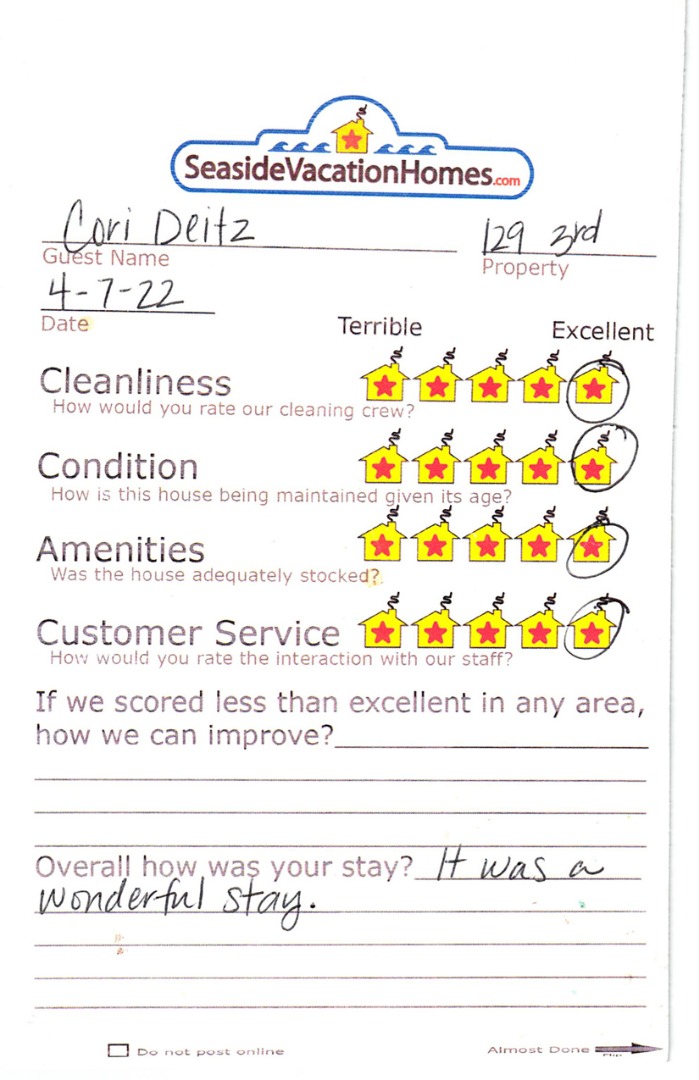 SeasideVacationHomes.com
Cori Deitz 129 3rd
Guest Name Property
4-7-22
Date
Terrible Excellent
Cleanliness
How would you rate our cleaning crew?
Condition
How is this house being maintained given its age?
Amenities
Was the house adequately stocked?
Customer Service
How would you rate the interaction with our staff?
If we scored less than excellent in any area,
how we can improve?
Overall how was your stay? It was a
wonderful stay.
Do not post online Almost Done Flip